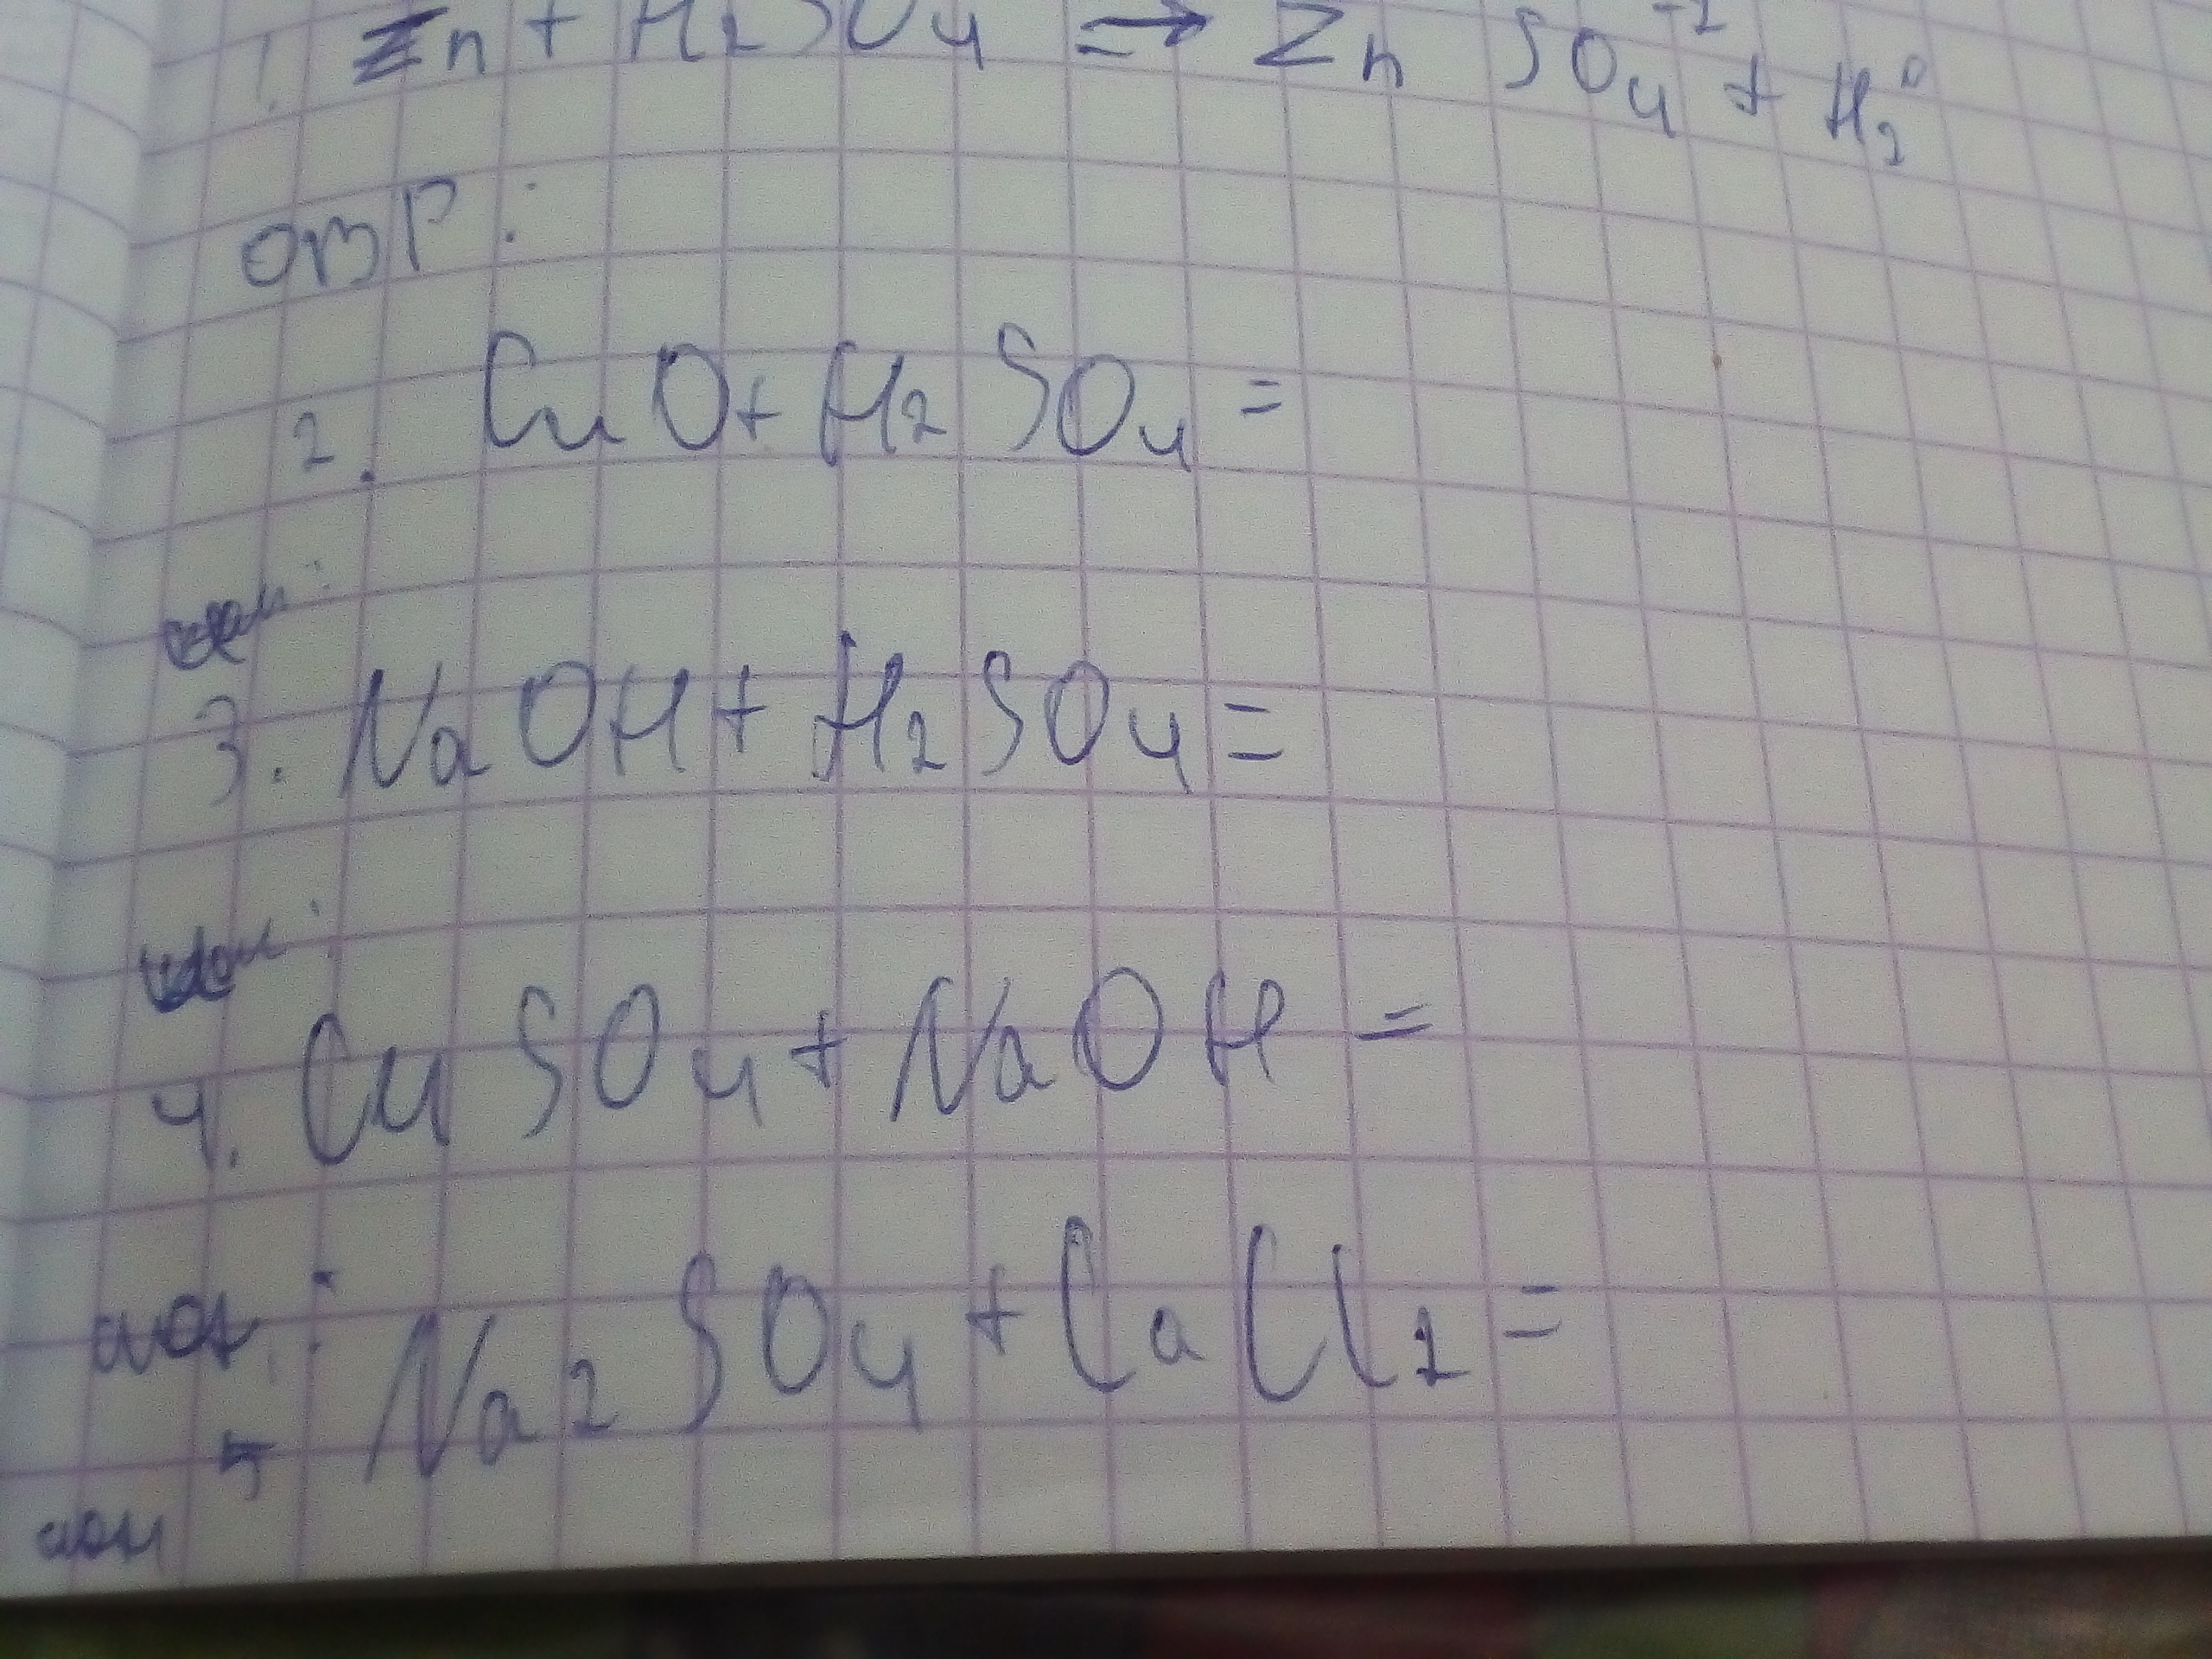 1. Zn + H₂SO₄ ⇒ Zn SO₄⁻² + H₂⁰
ОВР:
2. CuO + H₂SO₄ =
3. NaOH + H₂SO₄ =
4. CuSO₄ + NaOH =
мол:
5 Na₂SO₄ + CaCl₂ =